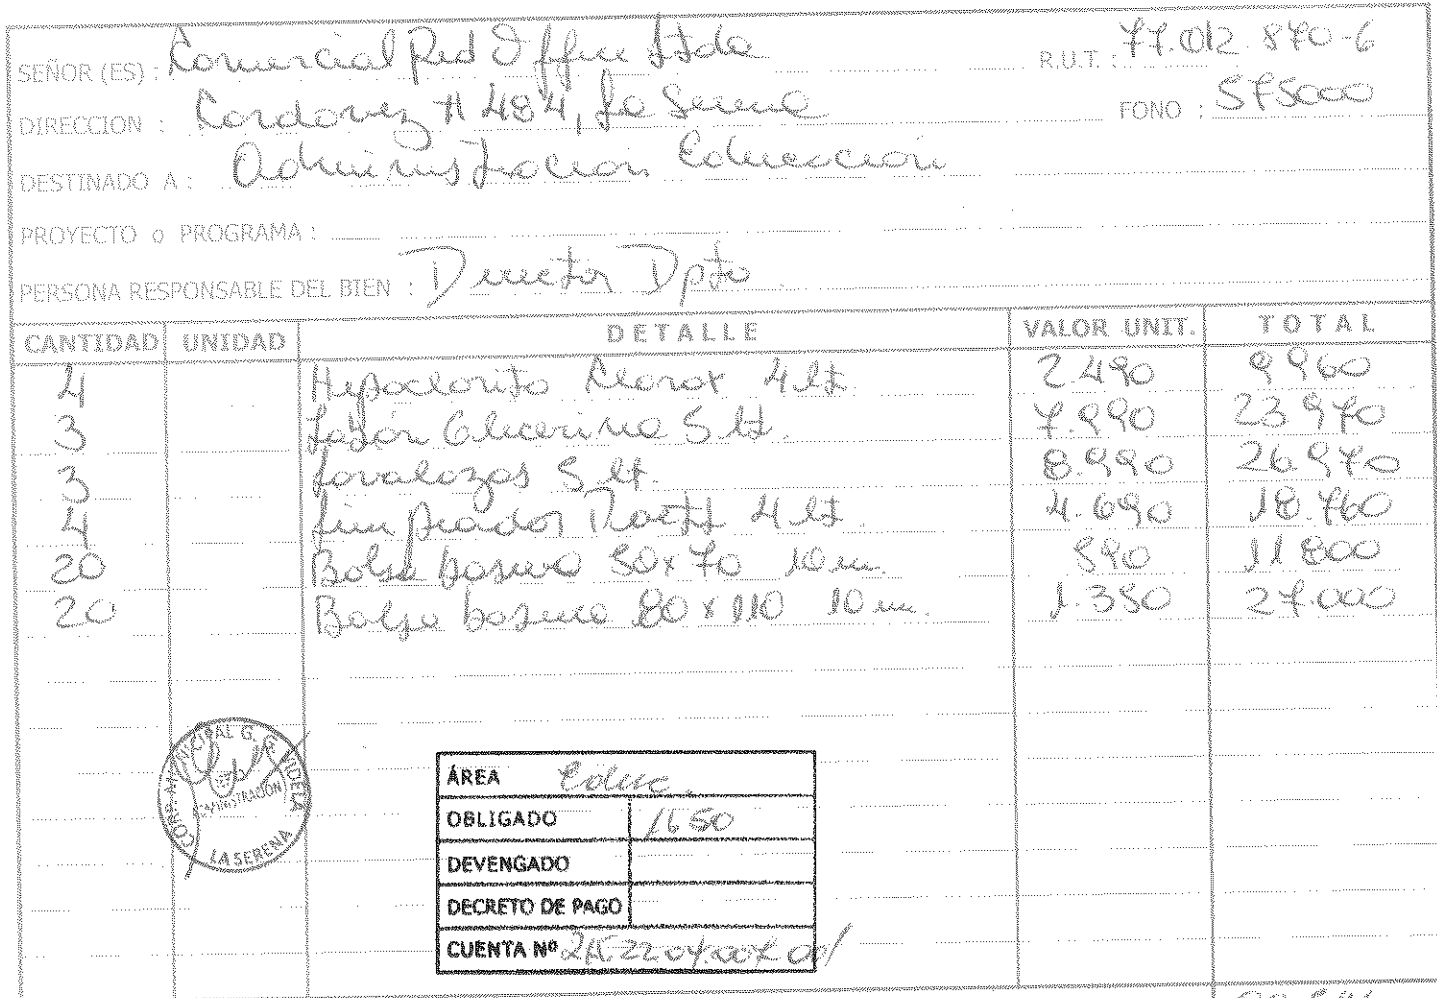 SEÑOR (ES) : Comercial Red Office Ltda R.U.T. : 77.012.870-6
DIRECCION : Cordovez # 484, La Serena FONO : 575000
DESTINADO A : Administración Educación
PROYECTO o PROGRAMA :
PERSONA RESPONSABLE DEL BIEN : Director Dpto
CANTIDAD UNIDAD DETALLE VALOR UNIT. TOTAL
4 Hipoclorito Clorox 4 lt. 2.490 9960
3 Jabón Glicerina 5 lt. 7.990 23.970
3 Lavalozas 5 lt. 8.990 26.970
4 Limpiador Poett 4 lt. 4.690 18.760
20 Bolsa basura 50x70 10 un. 590 11.800
20 Bolsa basura 80x110 10 un. 1.350 27.000
CORP. MUNICIPAL G. G. VIDELA
ADMINISTRACIÓN
LA SERENA
ÁREA Educ.
OBLIGADO 1650
DEVENGADO
DECRETO DE PAGO
CUENTA Nº 215.2204.007.001